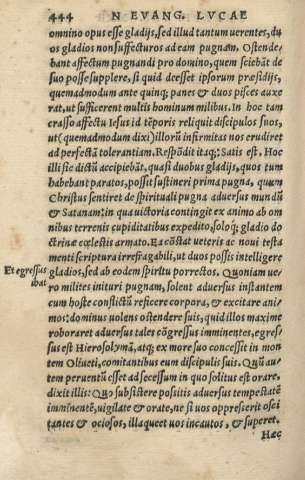 444 N EVANG. LVCAE
omnino opus esse gladijs, sed illud tantum uerentes, du
os gladios non suffecturos ad eam pugnam. Ostende⸗
bant affectum pugnandi pro domino, quem sciebāt de
suo posse supplere, si quid deesset ipsorum præsidijs,
quemadmodum ante quinq; panes & duo pisces auxe
rat, ut sufficerent multis hominum milibus. In hoc tam
crasso affectu Iesus id tēporis reliquit discipulos suos,
ut (quemadmodum dixi) illorū infirmitas nos erudiret
ad perfectā tolerantiam. Respōdit itaq; : Satis est. Hoc
illi sic dictū accipiebāt, quasi duobus gladijs, quos tum
habebant paratos, possit sustineri prima pugna, quum
Christus sentiret de spirituali pugna aduersus mundū
& Satanam: in qua uictoria contingit ex animo ab om
nibus terrenis cupiditatibus expedito, soloq; gladio do
ctrinæ cœlestis armato. Ea cōstat ueteris ac noui testa
menti scriptura irrefragabili, ut duos possis intelligere
Et egressus
ibat
gladios, sed ab eodem spiritu porrectos. Quoniam ue⸗
ro milites inituri pugnam, solent aduersus instantem
cum hoste conflictū reficere corpora, & excitare ani⸗
mos: dominus uolens ostendere suis, quid illos maxime
roboraret aduersus tales cōgressus imminentes, egres⸗
sus est Hierosolymā, atq; ex more suo concessit in mon
tem Oliueti, comitantibus eum discipulis suis. Quū au⸗
tem peruentū esset ad secessum in quo solitus est orare,
dixit illis: Quo subsistere possitis aduersus tempestatē
imminentē, uigilate & orate, ne si uos oppresserit osci
tantes & ociosos, illaqueet uos incautos, & superet.
Hæc